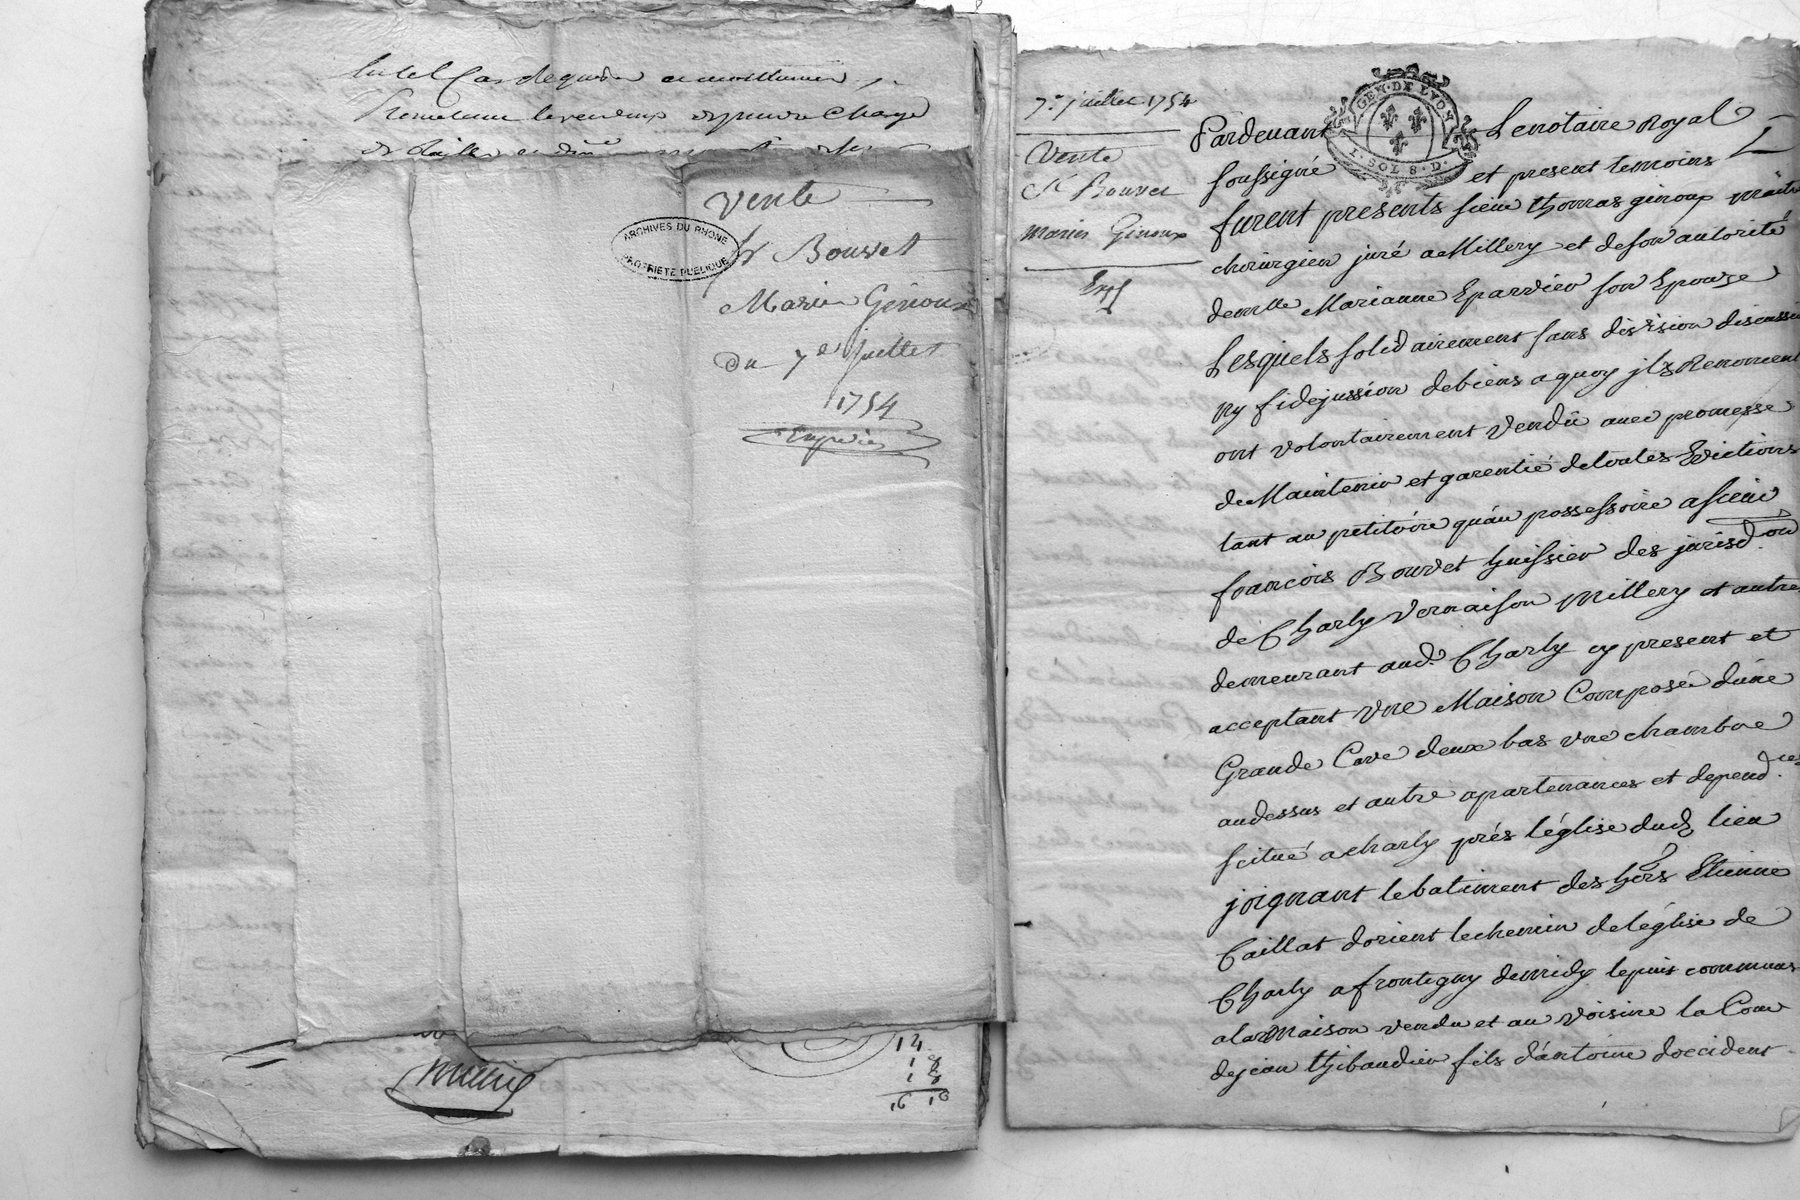 vente
Sr Bouvet
Marier Ginoux
Du 7e Juillet
1754
Expedié
ARCHIVES DU RHONE
PROPRIETE PUBLIQUE
14
1 8
1 8
16 16
7e juillet 1754
Vente
Sr Bouvet
marier Ginoux
Exp
GEN. DE LYON
1. SOL 8. D.
Pardevant Le notaire Royal
soussigné et present temoins
furent presents sieur thomas ginoux maitre
chirurgien juré a Millery et de son autorité
demlle Marianne Epardieu son Epouze
Lesquels solidairement sans division discussion
ny fidejussion de biens a quoy ils Renoncent
ont volontairement vendü avec promesse
de Maintenir et garentié de toutes Evictions
tant au petitoire qu'au possessoire a sieur
francois Bouvet huissier des jurisd.on
de Charly Vernaison Millery et autre
demeurant aud. Charly cy present et
acceptant une Maison Composeé d'une
Grande Cave deux bas une chambre
audessus et autre apartenances et depend.ces
scitué a charly prés l'église dud lieu
joignant le batiment des hers Etienne
Caillat d'orient le chemin de l'église de
Charly a frontigny de midy le puis commun
a la Maison vendu et au voisine la Cour
de jean thibaudier fils d'antoine d'occident